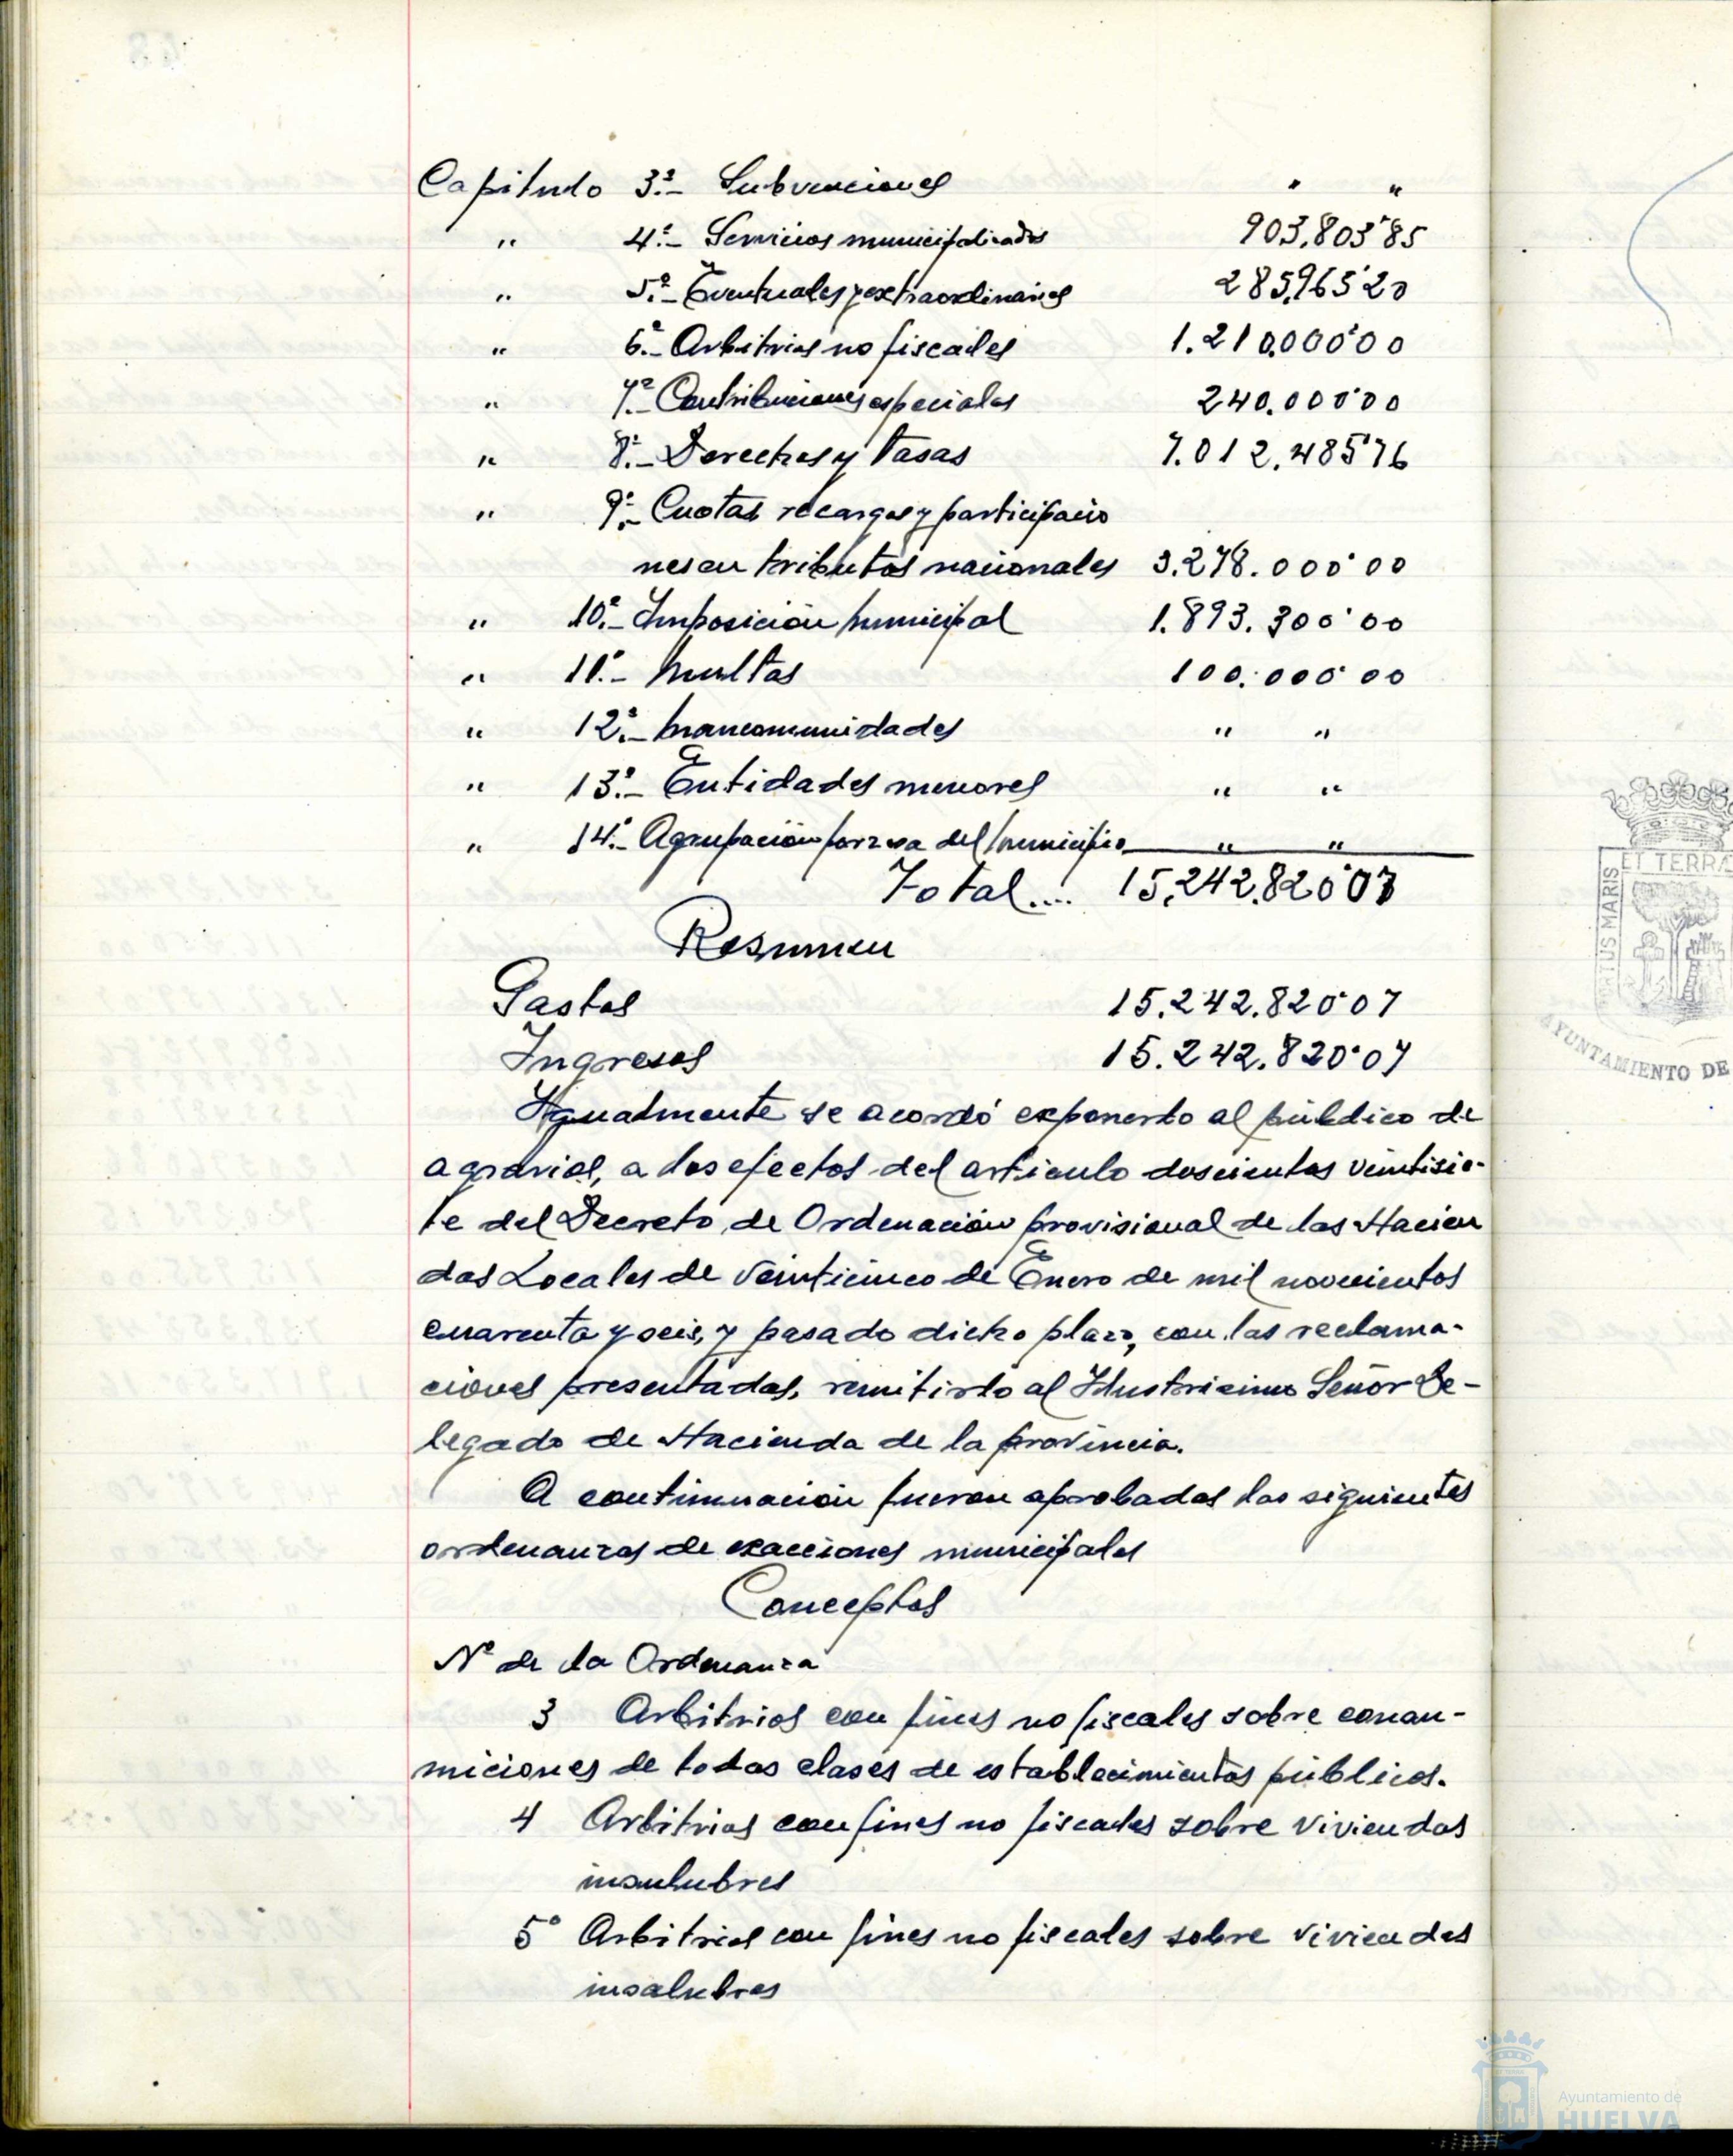 Capítulo 3º.- Subvenciones " "
" 4º.- Servicios municipalizados 903.803'85
" 5º.- Eventuales y extraordinarios 285.965'20
" 6º.- Arbitrios no fiscales 1.210.000'00
" 7º.- Contribuciones especiales 240.000'00
" 8º.- Derechos y Tasas 7.012.485'76
" 9º.- Cuotas recargos y participacio
nes en tributos nacionales 3.278.000'00
" 10º.- Imposición municipal 1.893.300'00
" 11º.- Multas 100.000'00
" 12º.- Mancomunidades " "
" 13º.- Entidades menores " "
" 14º.- Agrupación forzosa del municipio " "
Total.... 15.242.820'07
Resumen
Gastos 15.242.820'07
Ingresos 15.242.820'07
Igualmente se acordó exponerlo al público de
agravios, a los efectos del artículo doscientos veintisie-
te del Decreto de Ordenación provisional de las Hacien
das Locales de veinticinco de Enero de mil novecientos
cuarenta y seis, y pasado dicho plazo, con las reclama-
ciones presentadas, remitirlo al Ilustrísimo Señor De-
legado de Hacienda de la provincia.
A continuación fueron aprobadas las siguientes
ordenanzas de exacciones municipales
Conceptos
Nº de la Ordenanza
3 Arbitrios con fines no fiscales sobre conau-
miciones de todas clases de establecimientos públicos.
4 Arbitrios con fines no fiscales sobre viviendas
insalubres
5º Arbitrios con fines no fiscales sobre viviendas
insalubres
ET TERRÆ
TUS MARIS
AYUNTAMIENTO DE
Ayuntamiento de
HUELVA